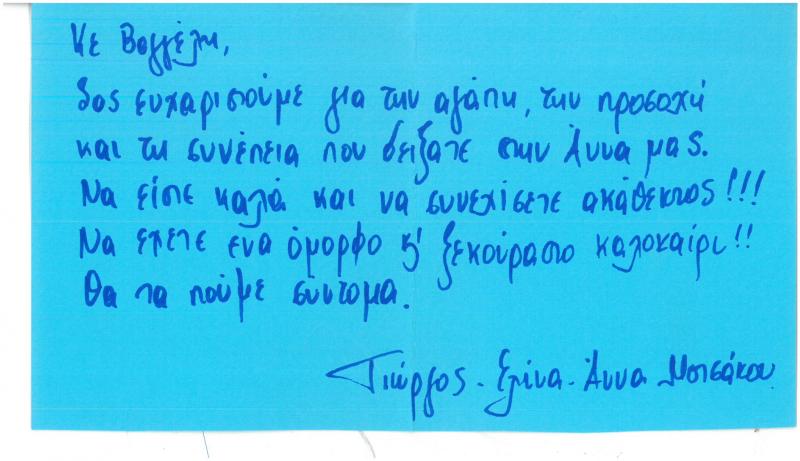 Κε Βαγγέλη,
Σας ευχαριστούμε για την αγάπη, την προσοχή
και τη συνέπεια που δείξατε στην Άννα μας.
Να είστε καλά και να συνεχίσετε ακάθεκτος!!!
Να έχετε ενα όμορφο κ' ξεκούραστο καλοκαίρι!!
Θα τα πούμε σύντομα.
Γιώργος - Ελίνα - Άννα